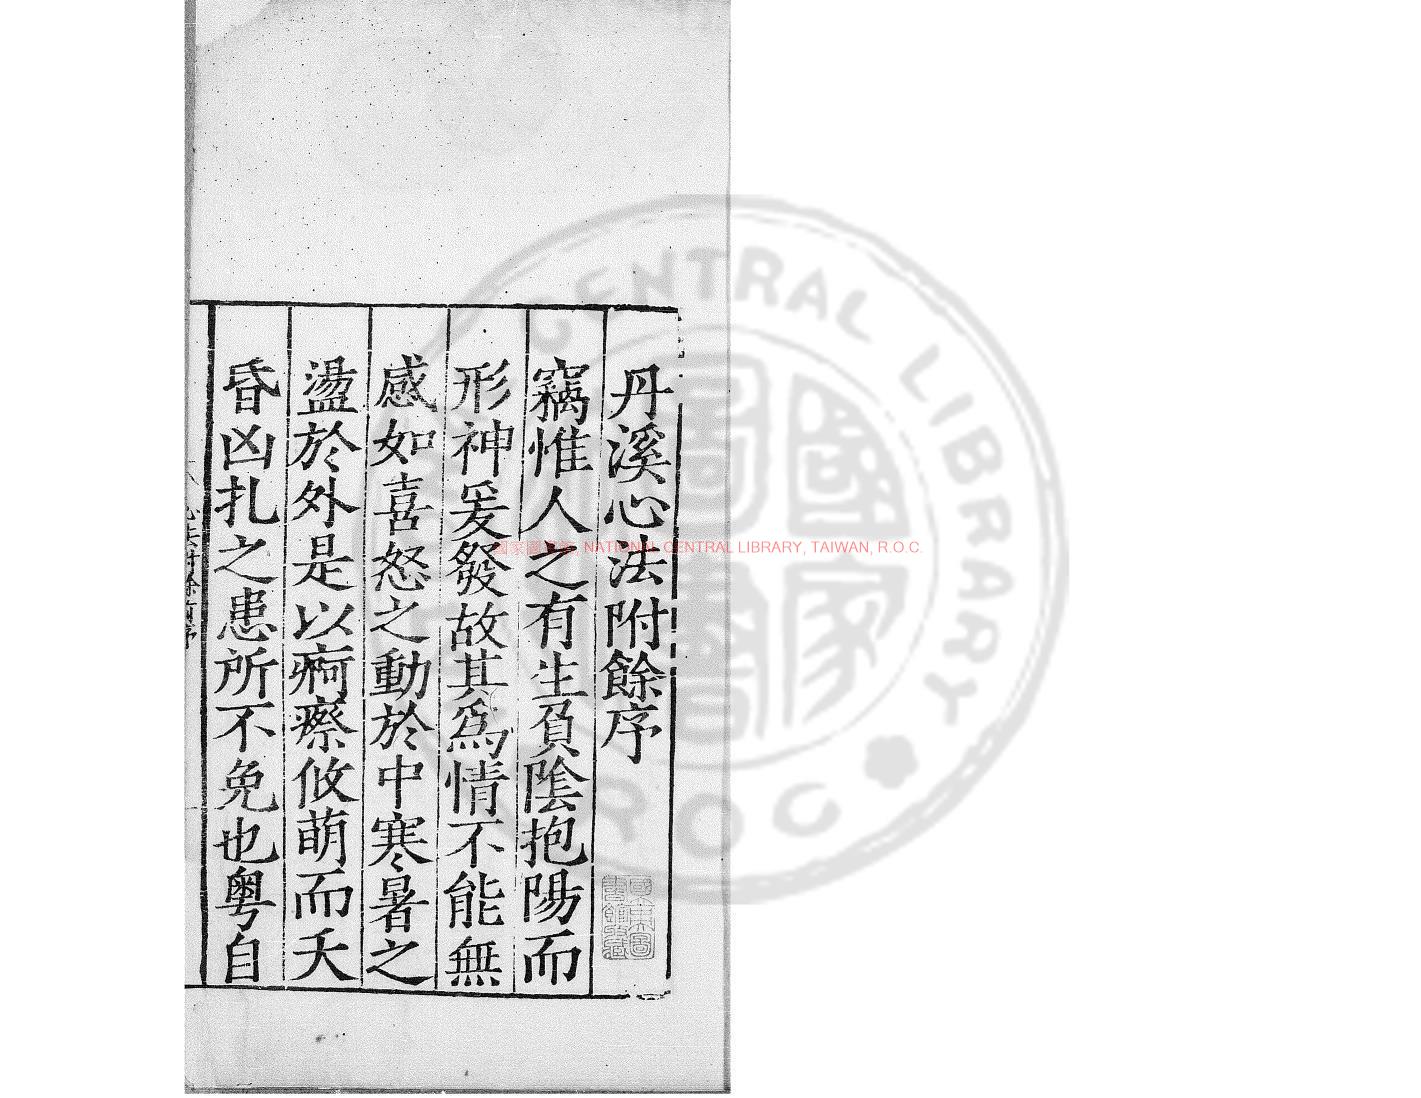 丹溪心法附餘序
竊惟人之有生負陰抱陽而
形神爰發故其爲情不能無
感如喜怒之動於中寒暑之
盪於外是以痾瘵攸萌而夭
昏凶札之患所不免也粵自
心法附餘前序
國家圖書館藏
國家圖書館, NATIONAL CENTRAL LIBRARY, TAIWAN, R.O.C.
CENTRAL LIBRARY
ROC
國家圖書